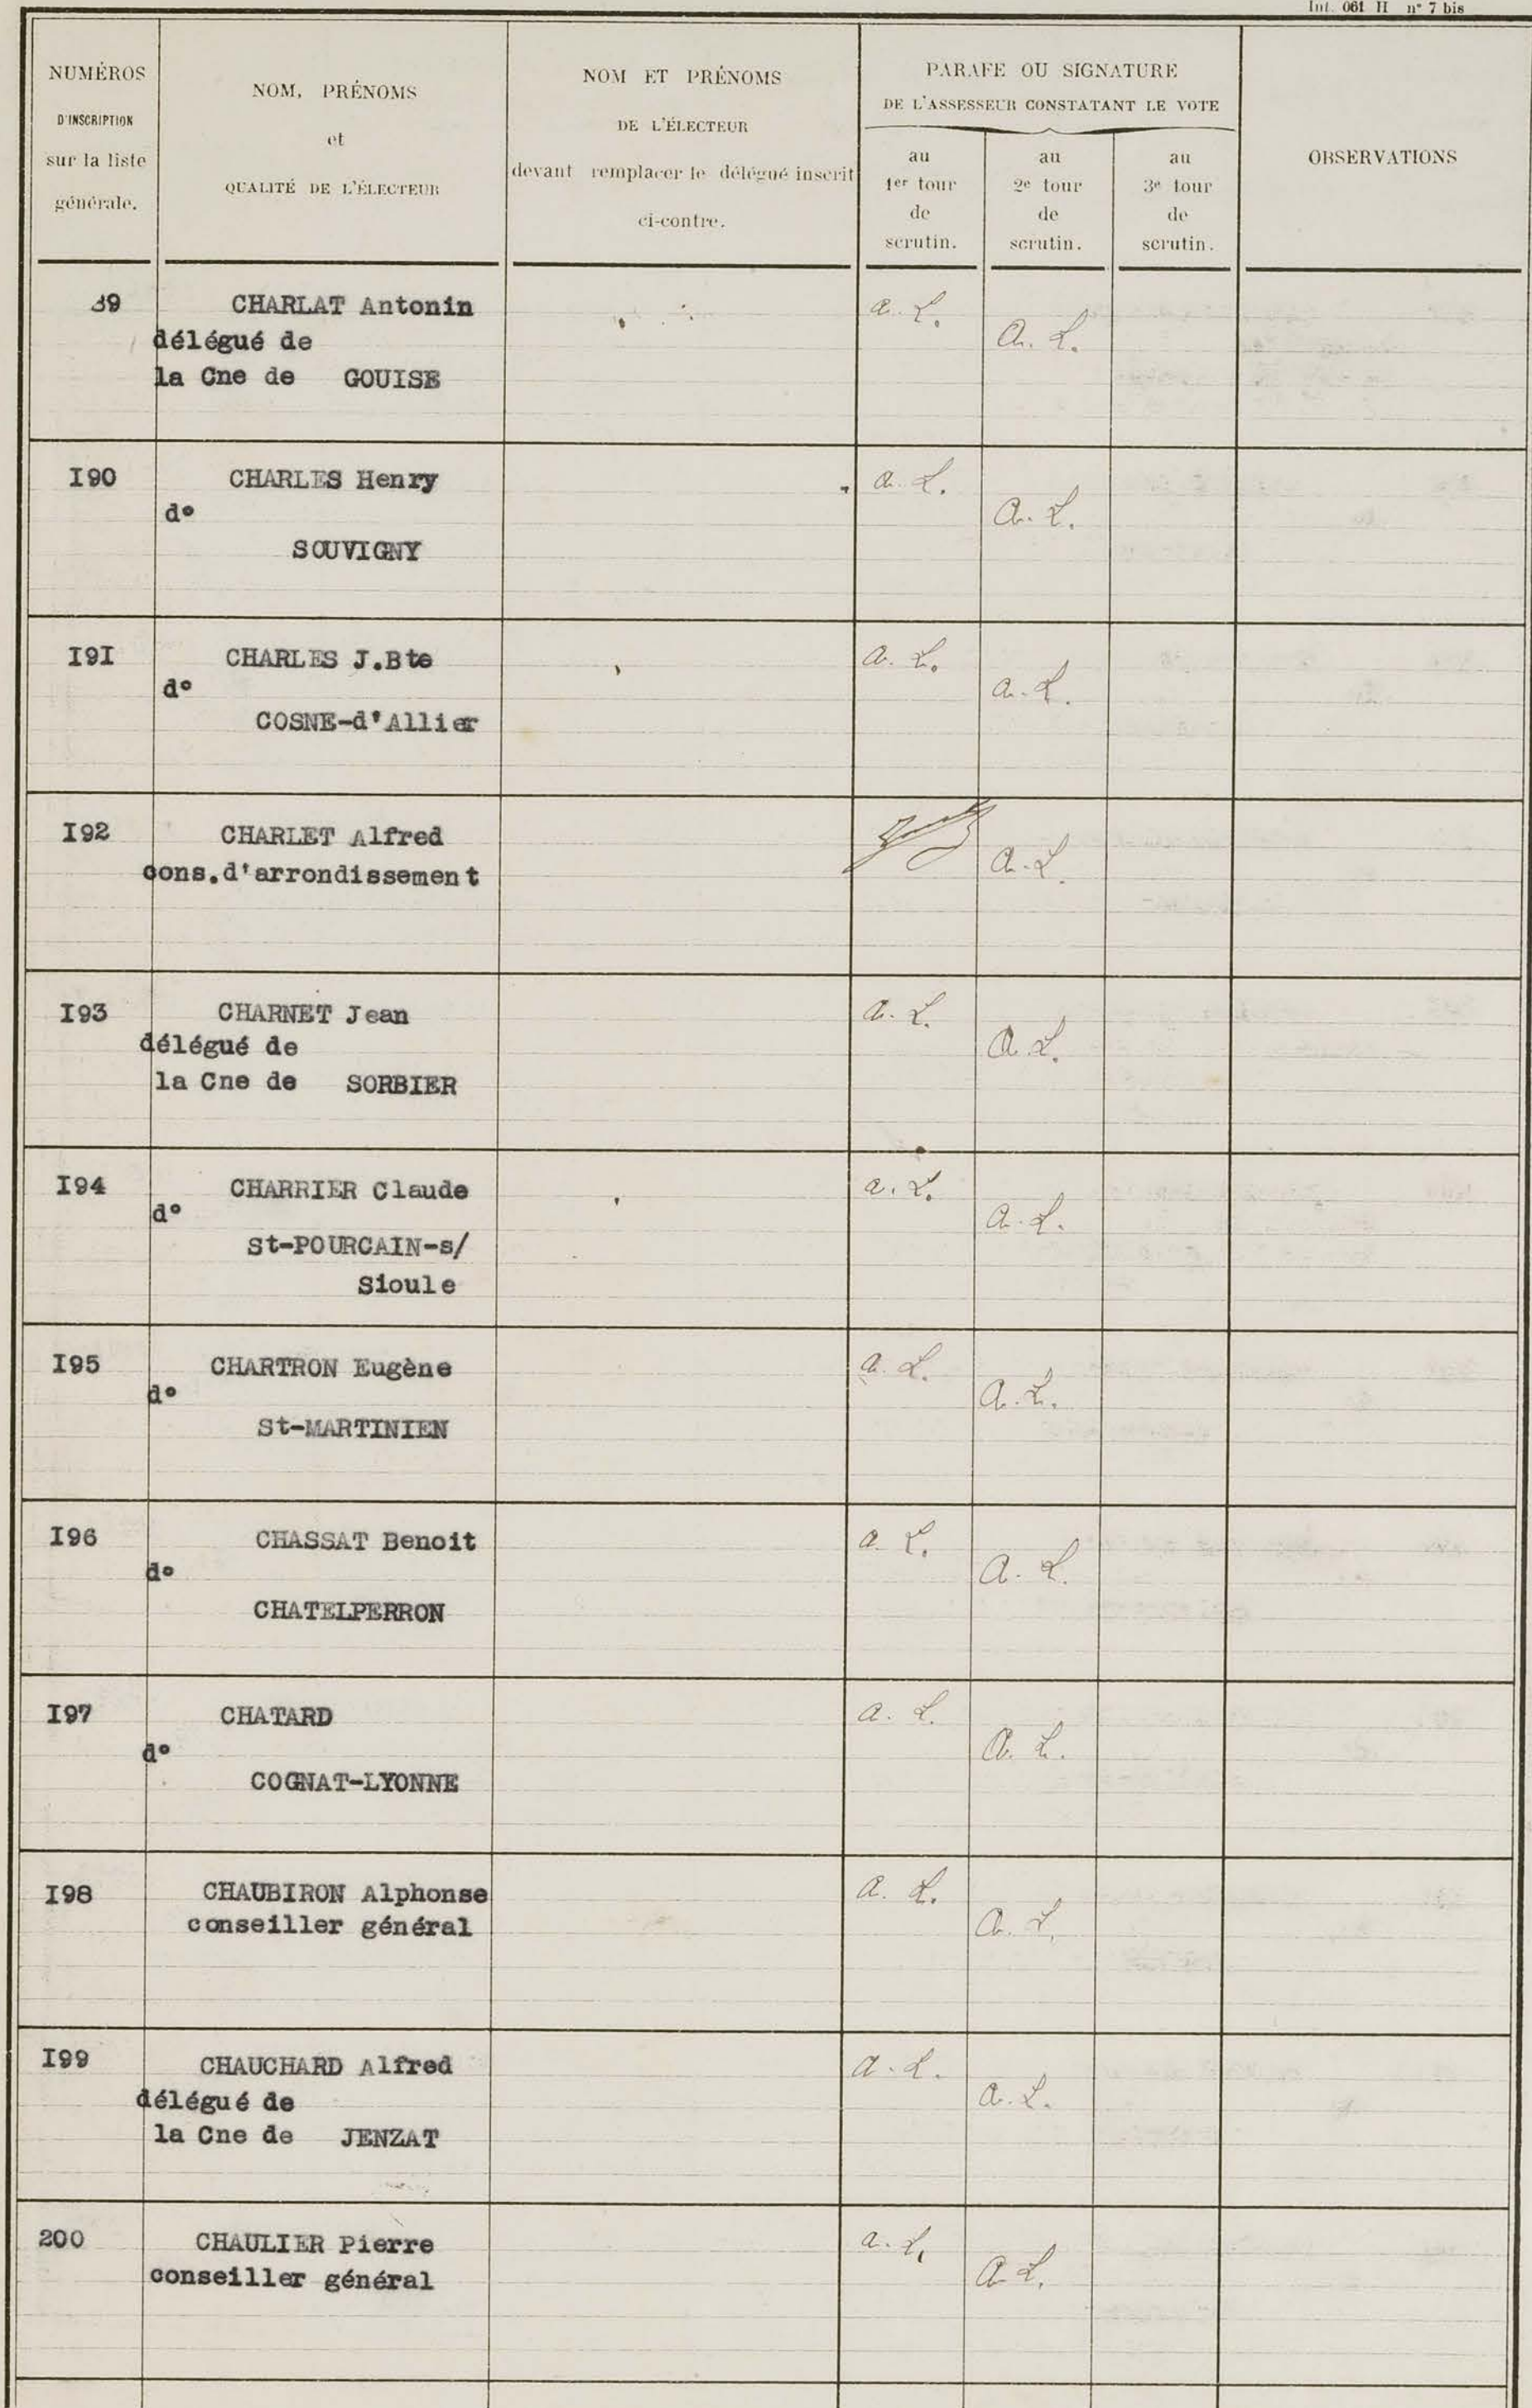 Int. 061 II n° 7 bis
NUMÉROS
D'INSCRIPTION
sur la liste
générale.
NOM, PRÉNOMS
et
QUALITÉ DE L'ÉLECTEUR
NOM ET PRÉNOMS
DE L'ÉLECTEUR
devant remplacer le délégué inscrit
ci-contre.
PARAFE OU SIGNATURE
DE L'ASSESSEUR CONSTATANT LE VOTE
au
1er tour
de
scrutin.
au
2e tour
de
scrutin.
au
3e tour
de
scrutin.
OBSERVATIONS
89 CHARLAT Antonin a. L.
délégué de A. L.
la Cne de GOUISE
I90 CHARLES Henry a. L.
d° A. L.
SOUVIGNY
I9I CHARLES J.Bte a. L.
d° a. L.
COSNE-d'Allier
I92 CHARLET Alfred
cons.d'arrondissement a. L.
I93 CHARNET Jean a. L.
délégué de A. L.
la Cne de SORBIER
I94 CHARRIER Claude a. L.
d° A. L.
St-POURCAIN-s/
Sioule
I95 CHARTRON Eugène a. L.
d° A. L.
St-MARTINIEN
I96 CHASSAT Benoit a. L.
d° A. L.
CHATELPERRON
I97 CHATARD a. L.
d° A. L.
COGNAT-LYONNE
I98 CHAUBIRON Alphonse a. L.
conseiller général A. L.
I99 CHAUCHARD Alfred a. L.
délégué de a. L.
la Cne de JENZAT
200 CHAULIER Pierre a. L.
conseiller général A L.